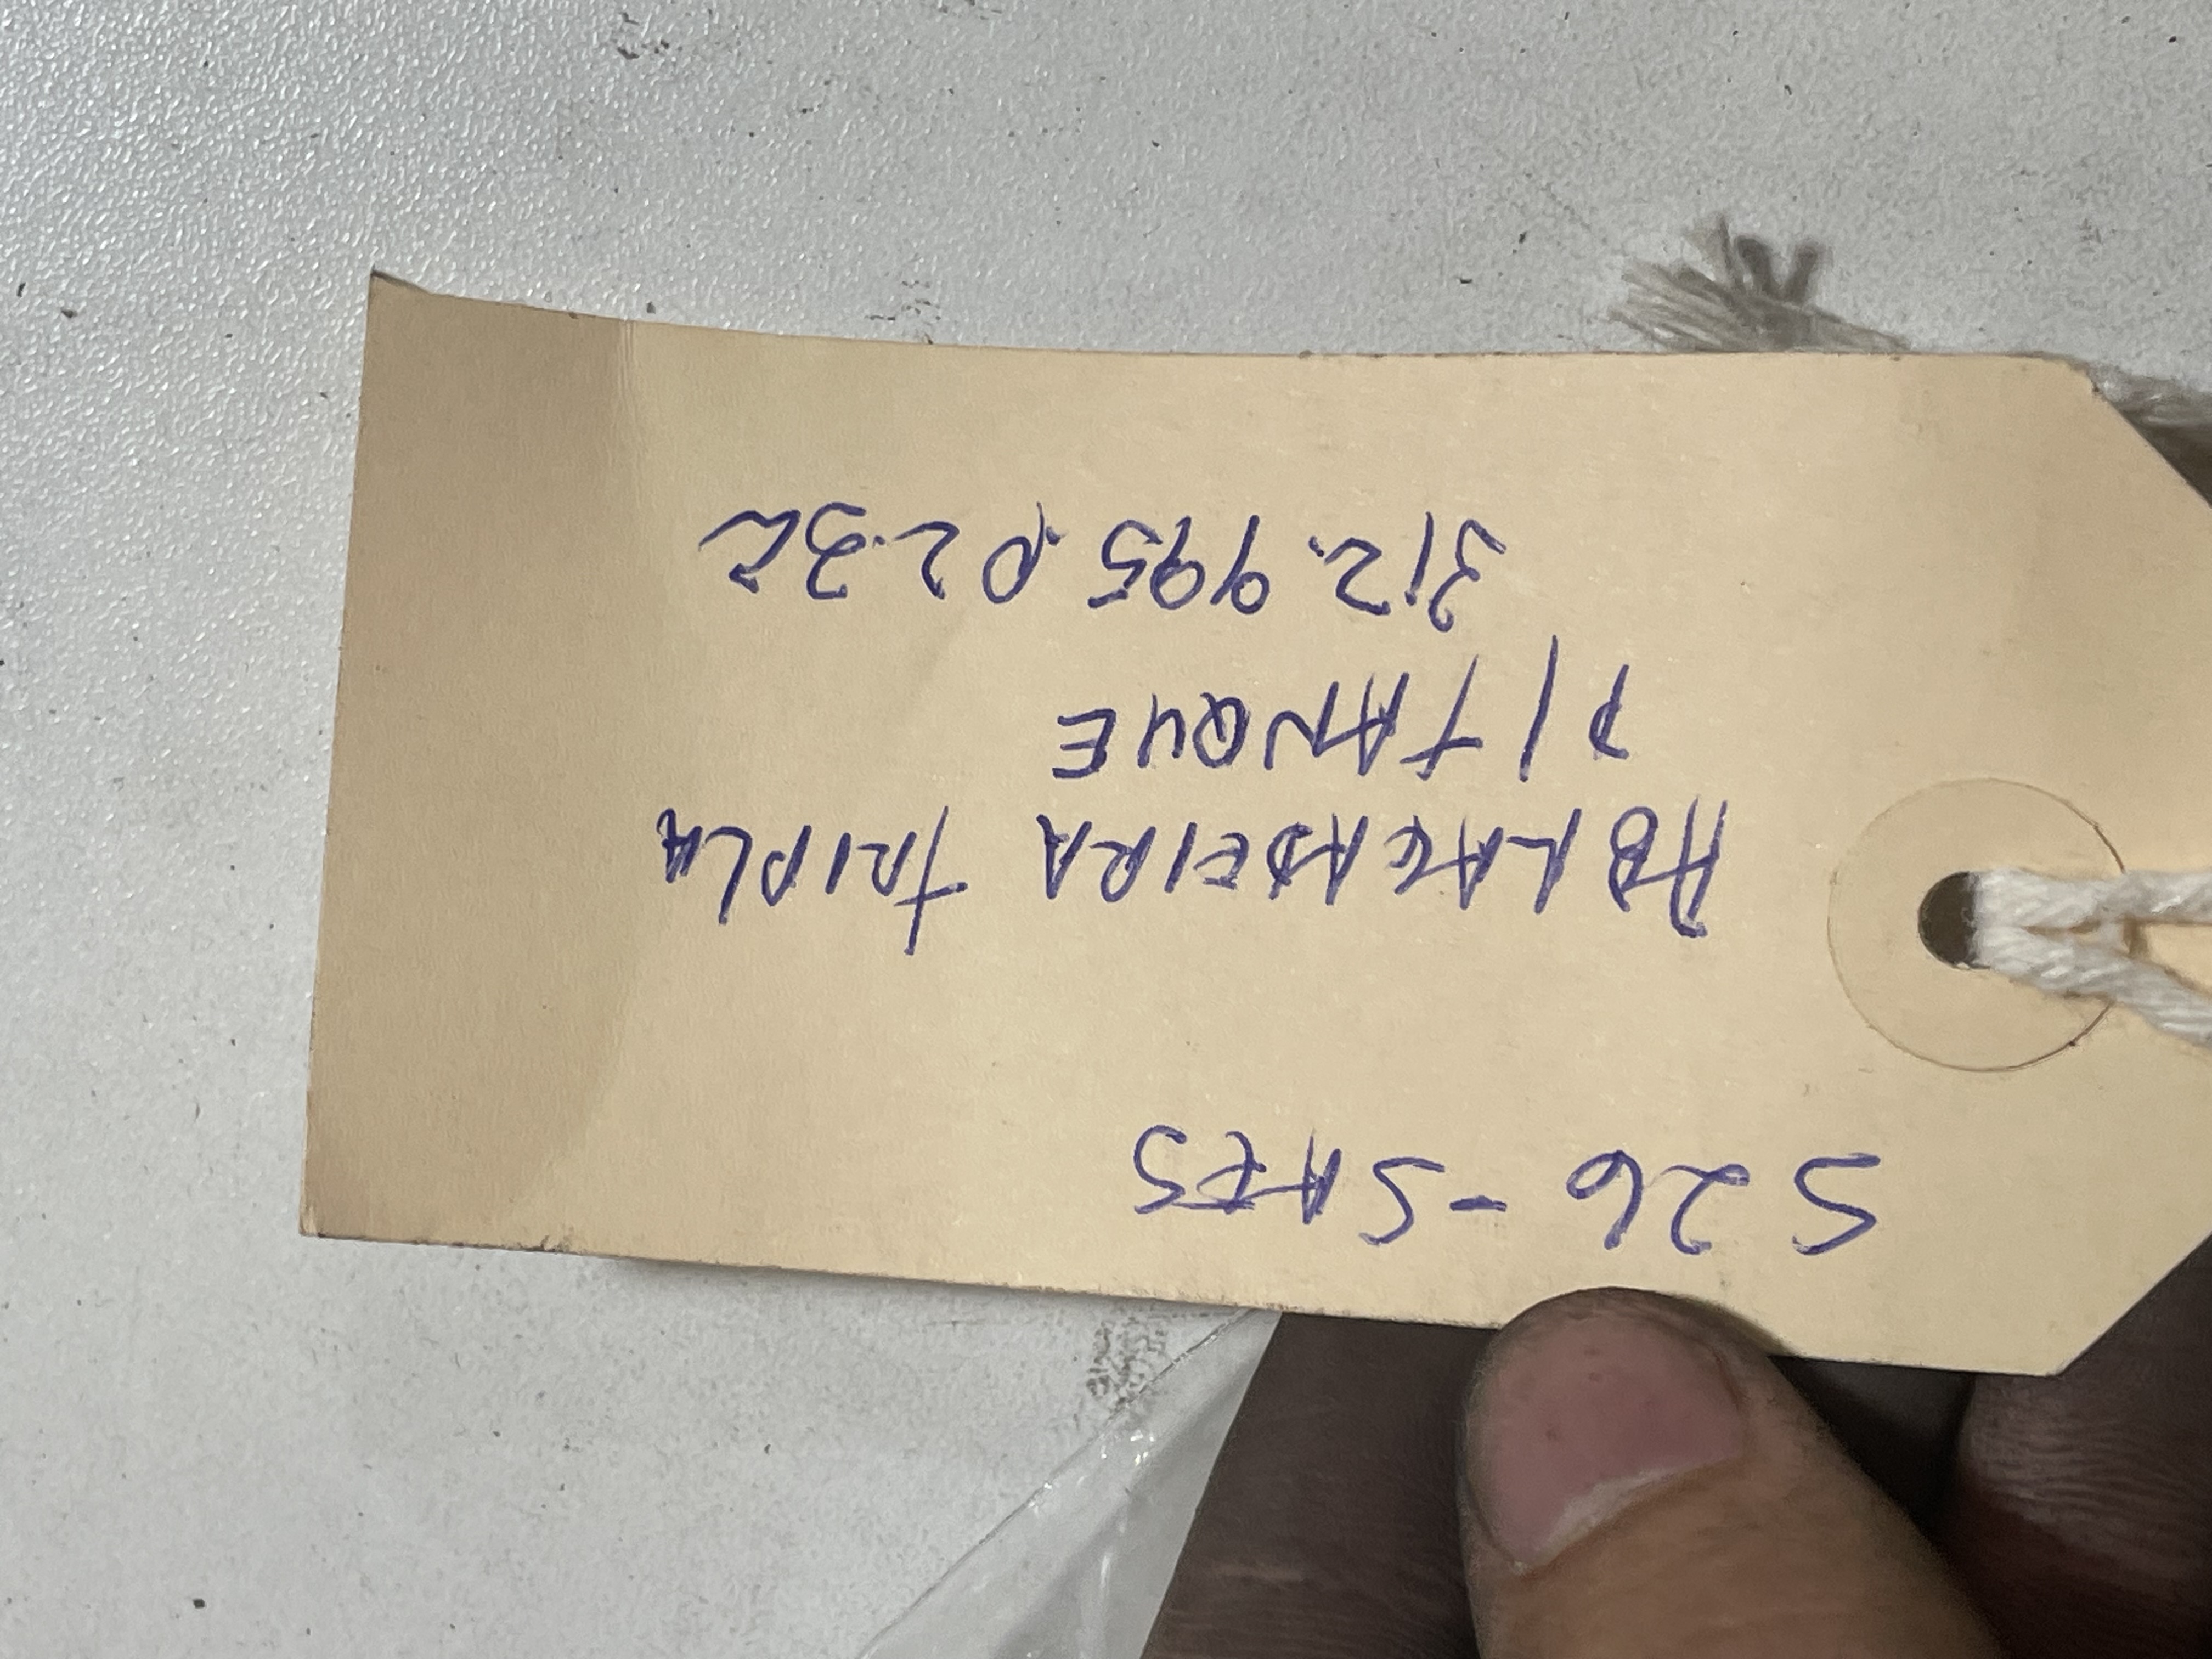 S 26 - SAES
ABRAÇADEIRA TRIPLA
P/ TANQUE
312.995.02.32